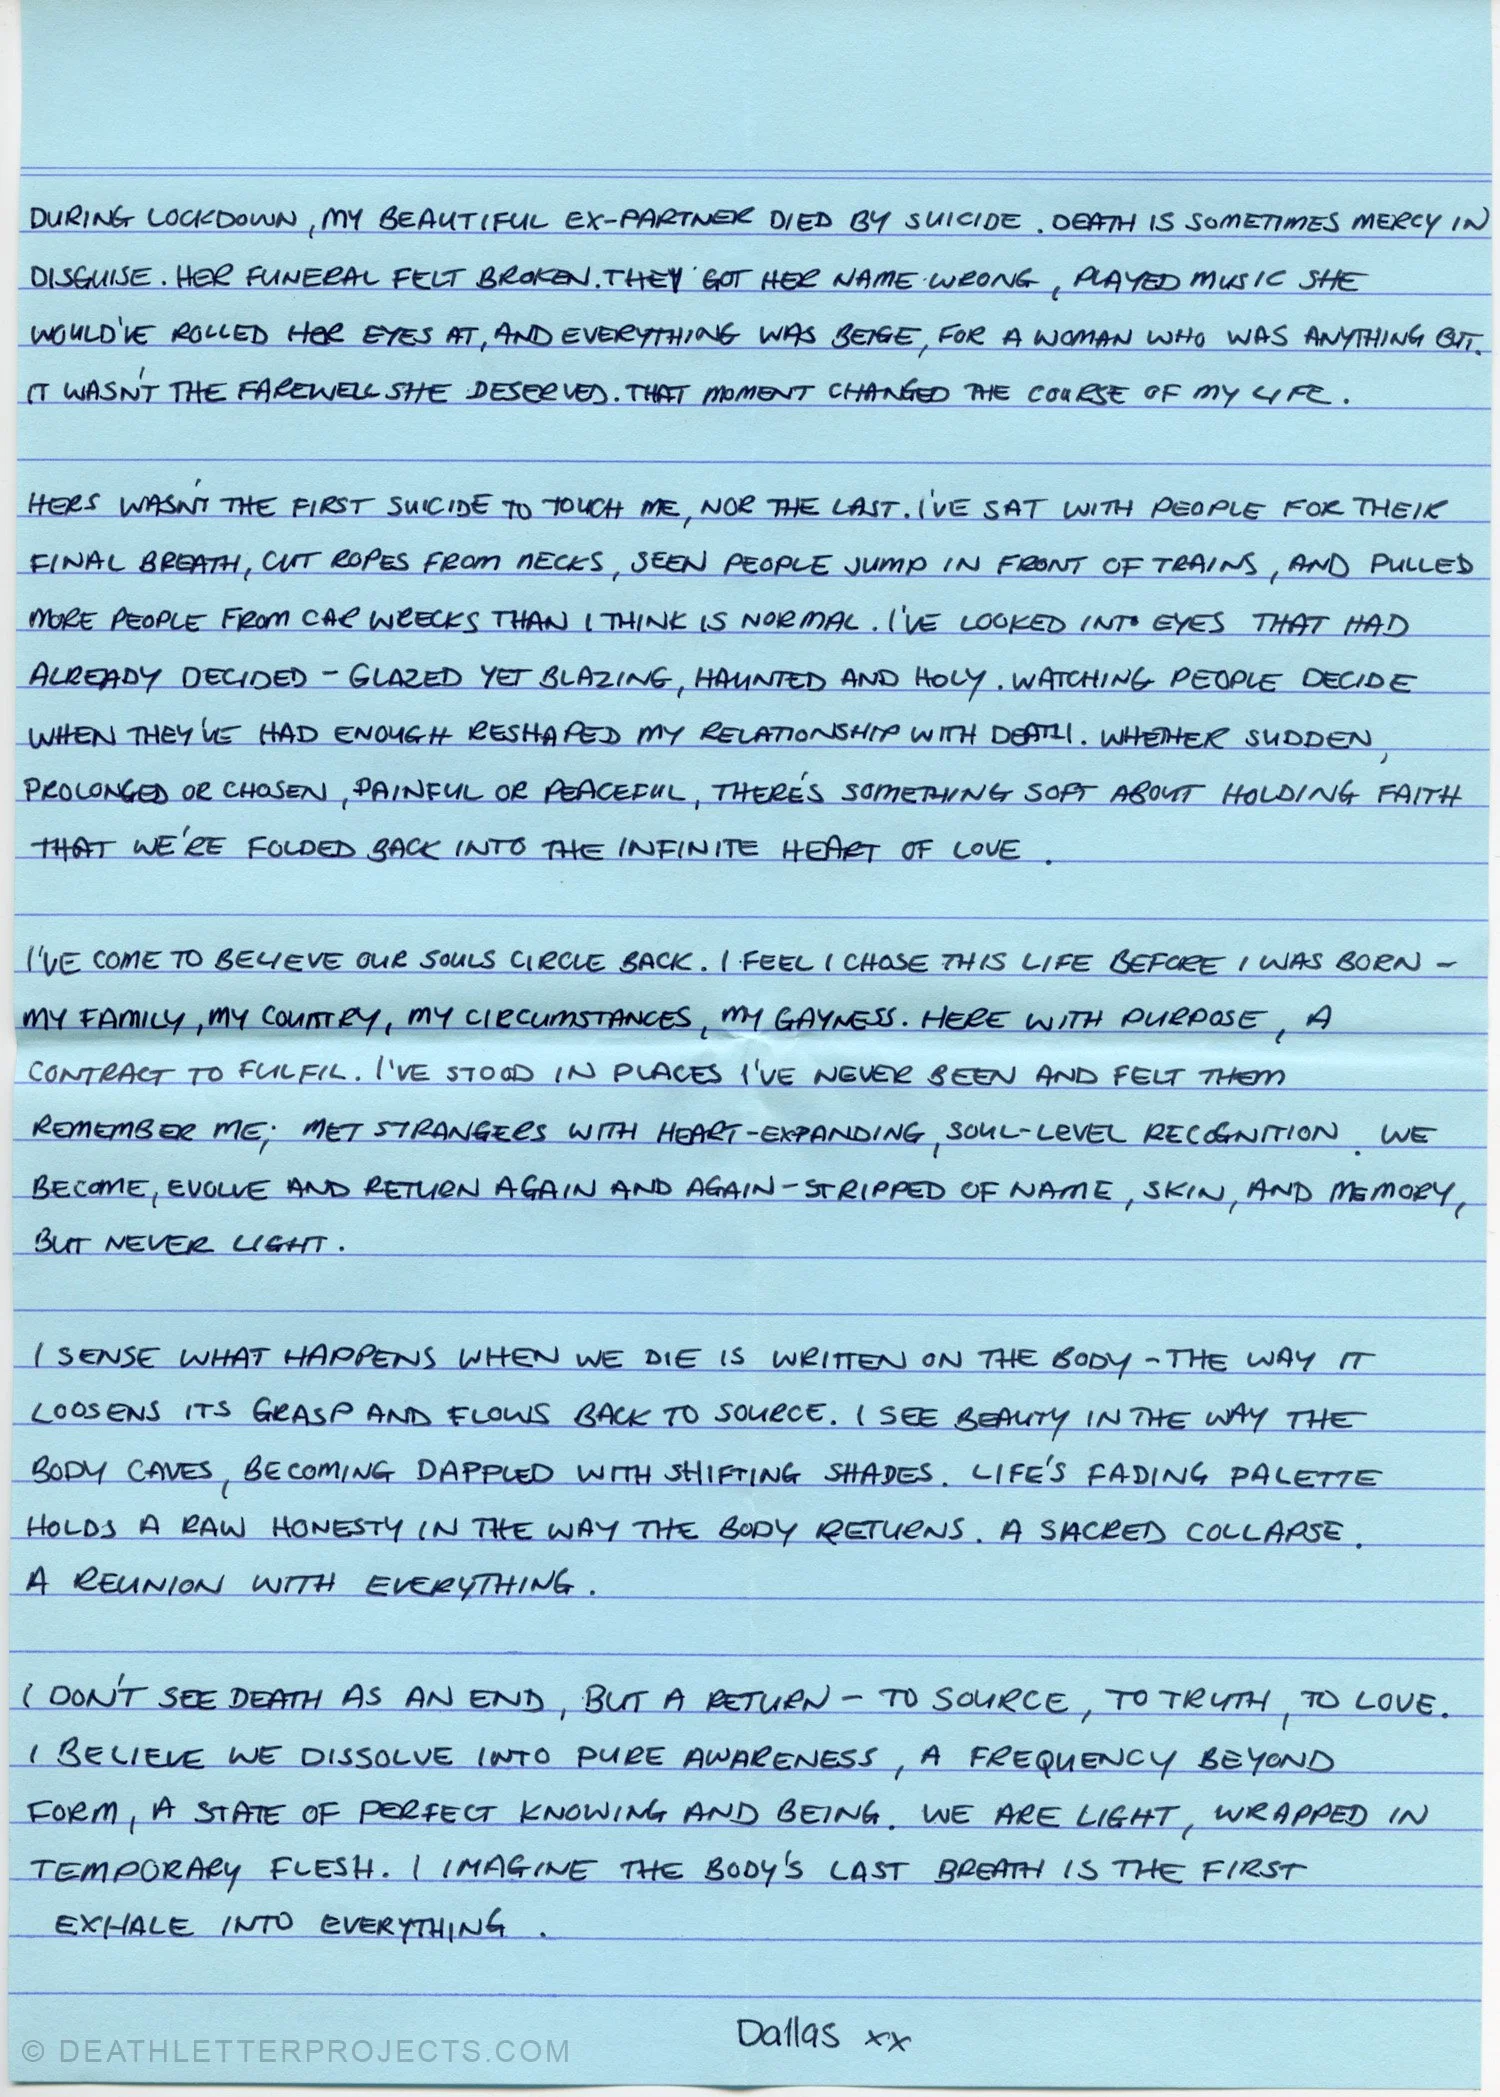 DURING LOCKDOWN, MY BEAUTIFUL EX-PARTNER DIED BY SUICIDE. DEATH IS SOMETIMES MERCY IN
DISGUISE. HER FUNERAL FELT BROKEN. THEY GOT HER NAME WRONG, PLAYED MUSIC SHE
WOULD'VE ROLLED HER EYES AT, AND EVERYTHING WAS BEIGE, FOR A WOMAN WHO WAS ANYTHING BUT.
IT WASN'T THE FAREWELL SHE DESERVED. THAT MOMENT CHANGED THE COURSE OF MY LIFE.
HERS WASN'T THE FIRST SUICIDE TO TOUCH ME, NOR THE LAST. I'VE SAT WITH PEOPLE FOR THEIR
FINAL BREATH, CUT ROPES FROM NECKS, SEEN PEOPLE JUMP IN FRONT OF TRAINS, AND PULLED
MORE PEOPLE FROM CAR WRECKS THAN I THINK IS NORMAL. I'VE LOOKED INTO EYES THAT HAD
ALREADY DECIDED - GLAZED YET BLAZING, HAUNTED AND HOLY. WATCHING PEOPLE DECIDE
WHEN THEY'VE HAD ENOUGH RESHAPED MY RELATIONSHIP WITH DEATH. WHETHER SUDDEN,
PROLONGED OR CHOSEN, PAINFUL OR PEACEFUL, THERE'S SOMETHING SOFT ABOUT HOLDING FAITH
THAT WE'RE FOLDED BACK INTO THE INFINITE HEART OF LOVE.
I'VE COME TO BELIEVE OUR SOULS CIRCLE BACK. I FEEL I CHOSE THIS LIFE BEFORE I WAS BORN -
MY FAMILY, MY COUNTRY, MY CIRCUMSTANCES, MY GAYNESS. HERE WITH PURPOSE, A
CONTRACT TO FULFIL. I'VE STOOD IN PLACES I'VE NEVER BEEN AND FELT THEM
REMEMBER ME; MET STRANGERS WITH HEART-EXPANDING, SOUL-LEVEL RECOGNITION. WE
BECOME, EVOLVE AND RETURN AGAIN AND AGAIN - STRIPPED OF NAME, SKIN, AND MEMORY,
BUT NEVER LIGHT.
I SENSE WHAT HAPPENS WHEN WE DIE IS WRITTEN ON THE BODY - THE WAY IT
LOOSENS ITS GRASP AND FLOWS BACK TO SOURCE. I SEE BEAUTY IN THE WAY THE
BODY CAVES, BECOMING DAPPLED WITH SHIFTING SHADES. LIFE'S FADING PALETTE
HOLDS A RAW HONESTY IN THE WAY THE BODY RETURNS. A SACRED COLLAPSE.
A REUNION WITH EVERYTHING.
I DON'T SEE DEATH AS AN END, BUT A RETURN - TO SOURCE, TO TRUTH, TO LOVE.
I BELIEVE WE DISSOLVE INTO PURE AWARENESS, A FREQUENCY BEYOND
FORM, A STATE OF PERFECT KNOWING AND BEING. WE ARE LIGHT, WRAPPED IN
TEMPORARY FLESH. I IMAGINE THE BODY'S LAST BREATH IS THE FIRST
EXHALE INTO EVERYTHING.
Dallas xx
© DEATHLETTERPROJECTS.COM